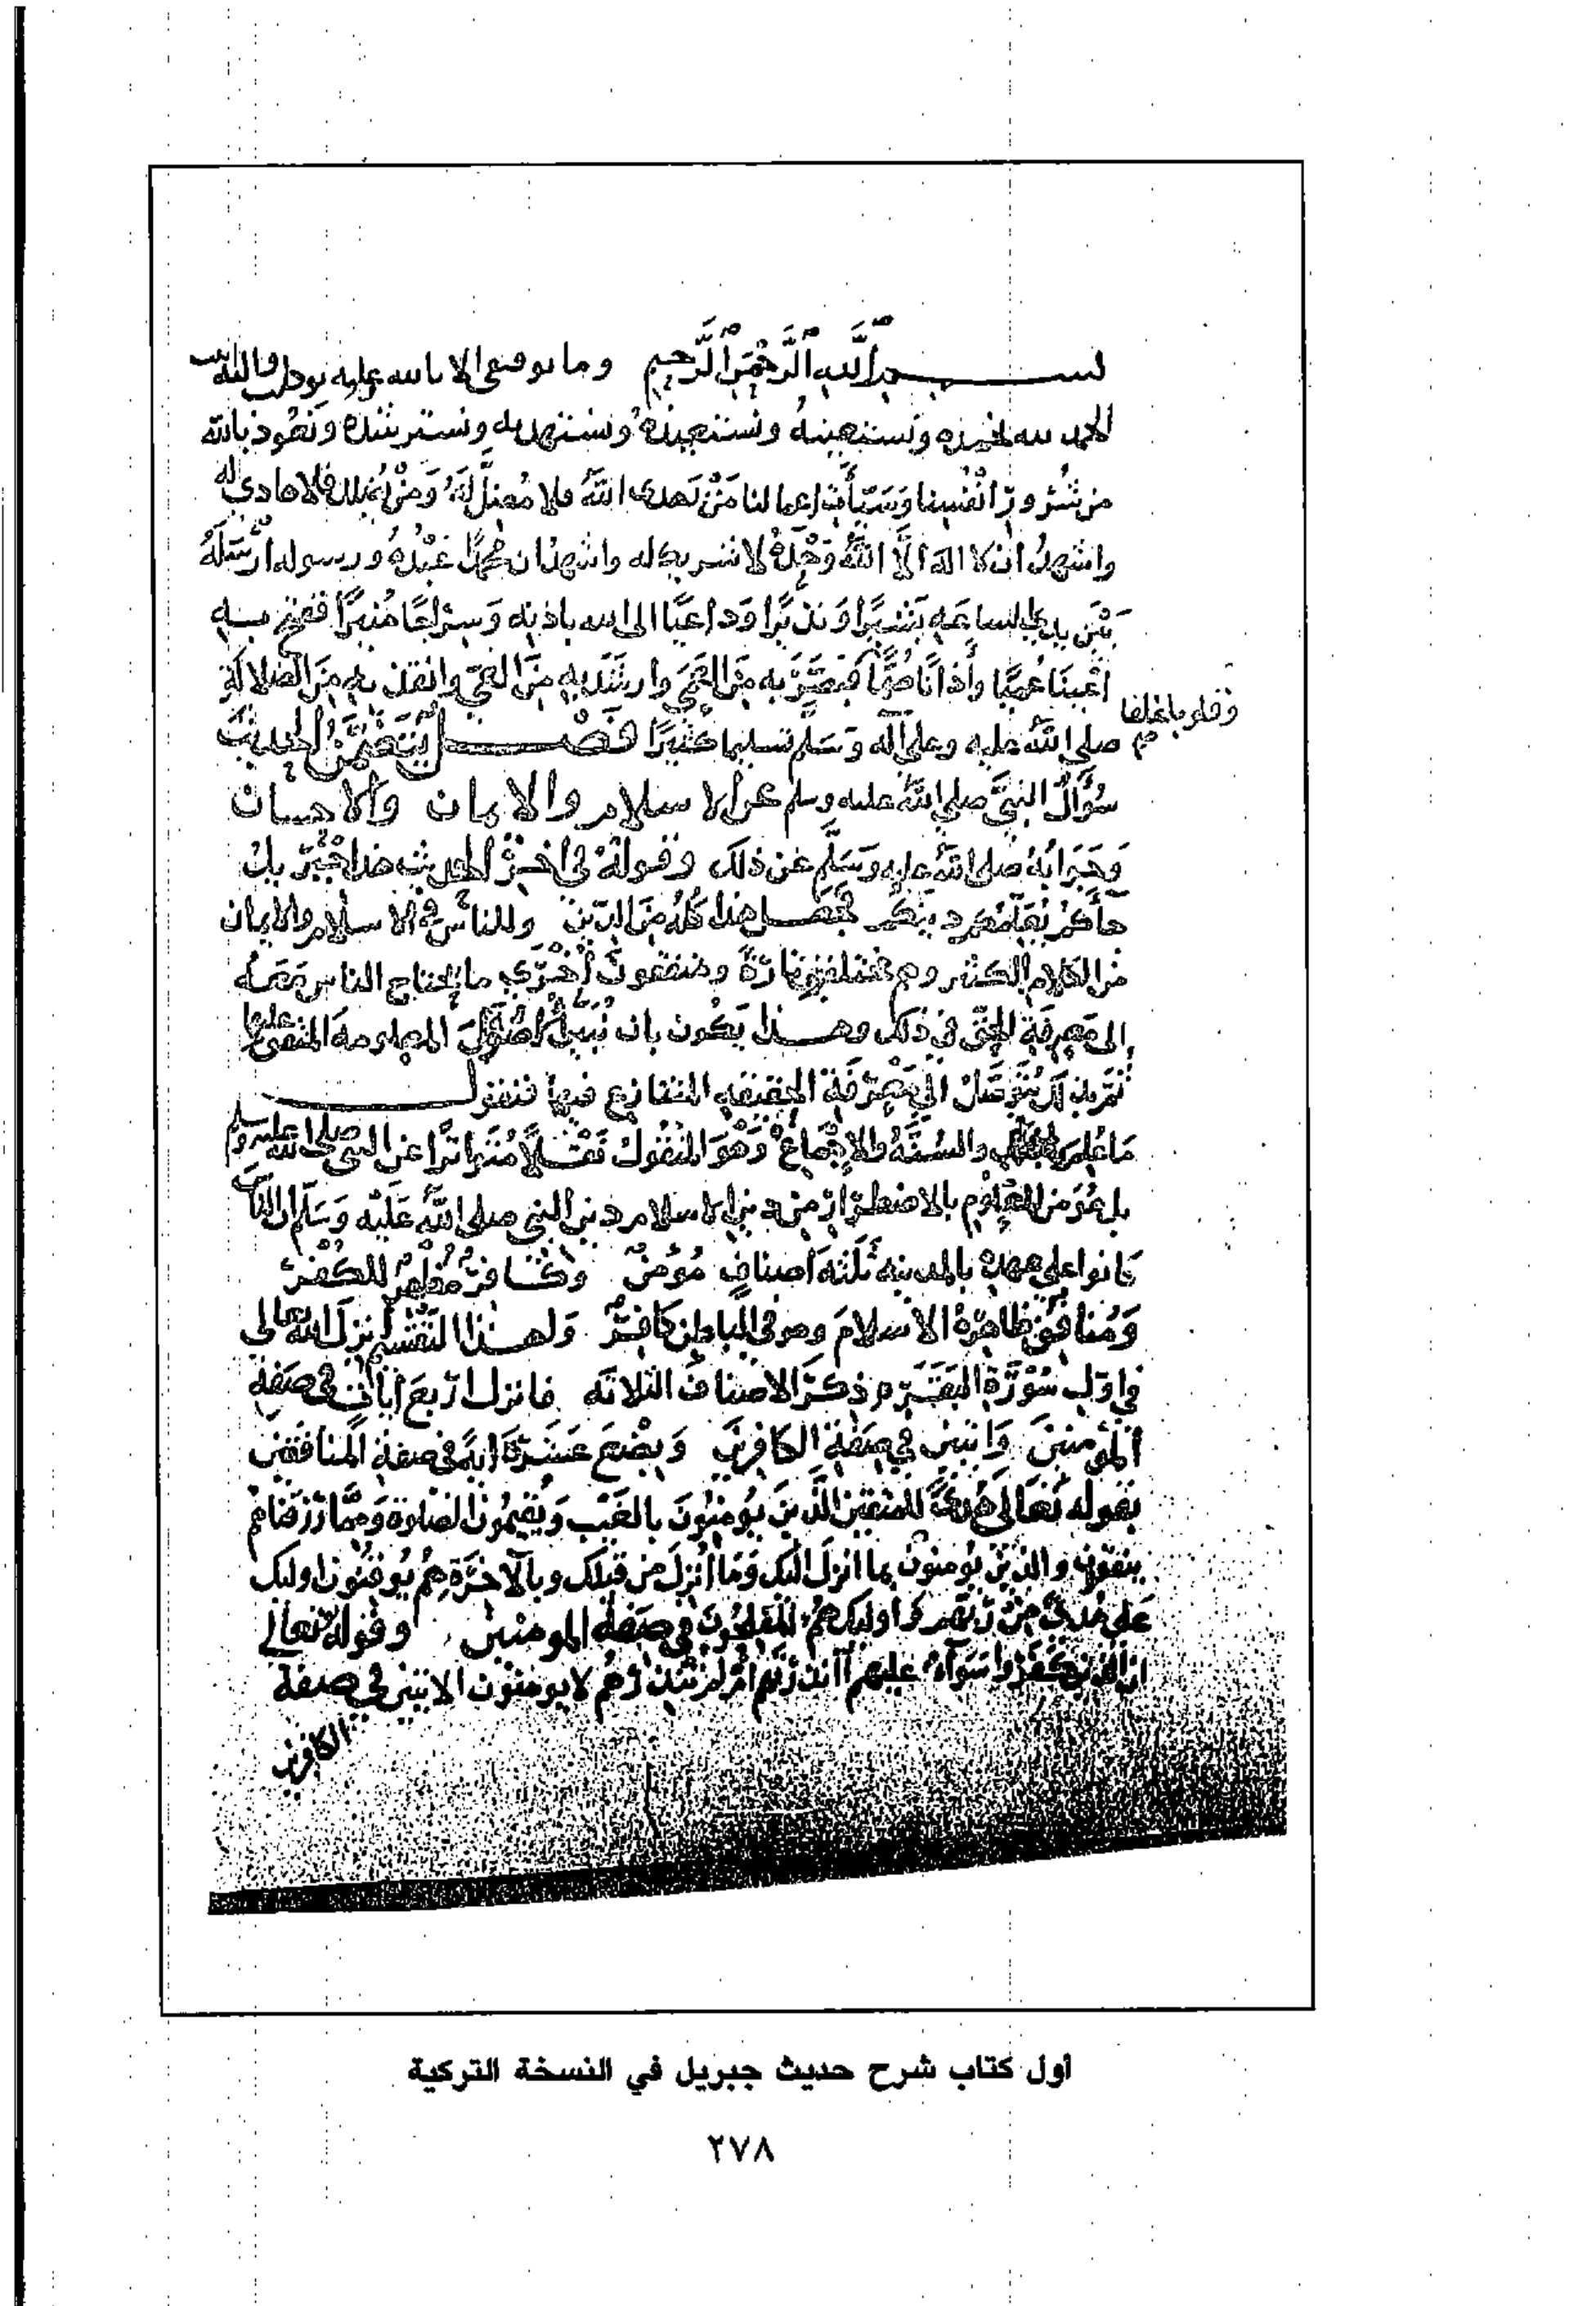 بسم الله الرحمن الرحيم وما توفيقي الا بالله عليه توكلت واليه انيب
الحمد لله نحمده ونستعينه ونستعيذه ونستهديه ونسترشده ونعوذ بالله
من شرور انفسنا وسيآت اعمالنا من يهدى الله فلا مضل له ومن يضلل فلا هادي له
واشهد ان لا اله الا الله وحده لا شريك له واشهد ان محمدا عبده ورسوله ارسله
بين يدي الساعه بشيرا ونذيرا وداعيا الى الله باذنه وسراجا منيرا ففتح به
اعينا عميا وأذانا صما فبصر به من العمى وارشد به من الغي وانقذ به من الضلالة
وقلوبا غلفا
صلى الله عليه وعلى آله وسلم تسليما كثيرا فصل يتضمن الحديث
سؤال النبي صلى الله عليه وسلم عن الاسلام والايمان والاحسان
وجوابه صلى الله عليه وسلم عن ذلك وقوله في اخر الحديث هذا جبريل
جأكم يعلمكم دينكم فجعل هذا كله من الدين وللناس في الاسلام والايمان
من الكلام الكثير وهم مختلفين تارة ومتفقون أخرى ما يحتاج الناس معه
الى معرفة الحق في ذلك وهذا يكون بان نبين الاصول المعلومة المتفق عليها
ثم بذلك يتوصل الى معرفة الحقيقه المتنازع فيها فنقول
ما علم بالكتاب والسنه والاجماع وهو المنقول نقلا متواترا عن النبي صلى الله عليه وسلم
بل هو من المعلوم بالاضطرار من دين الاسلام دين النبي صلى الله عليه وسلم ان الناس
كانوا على عهده بالمدينه ثلثة اصناف مؤمن وكافر مظهر للكفر
ومنافق ظاهره الاسلام وهو في الباطن كافر ولهذا التقسيم انزل الله تعالى
في اول سورة البقره ذكر الاصناف الثلاثه فانزل اربع أيات في صفة
المؤمنين واثنين في صفة الكافرين وبضع عشرة اية في صفة المنافقين
بقوله تعالى هدى للمتقين الذين يؤمنون بالغيب ويقيمون الصلوة ومما رزقناهم
ينفقون والذين يومنون بما انزل اليك وما انزل من قبلك وبالآخرة هم يوقنون اوليك
على هدى من ربهم واوليك هم المفلحون في صفة المومنين وقوله تعالى
ان الذين كفروا سوآء عليهم أأنذرتهم ام لم تنذرهم لا يومنون الاثنين في صفة
الكافرين
أول كتاب شرح حديث جبريل في النسخة التركية
٢٧٨